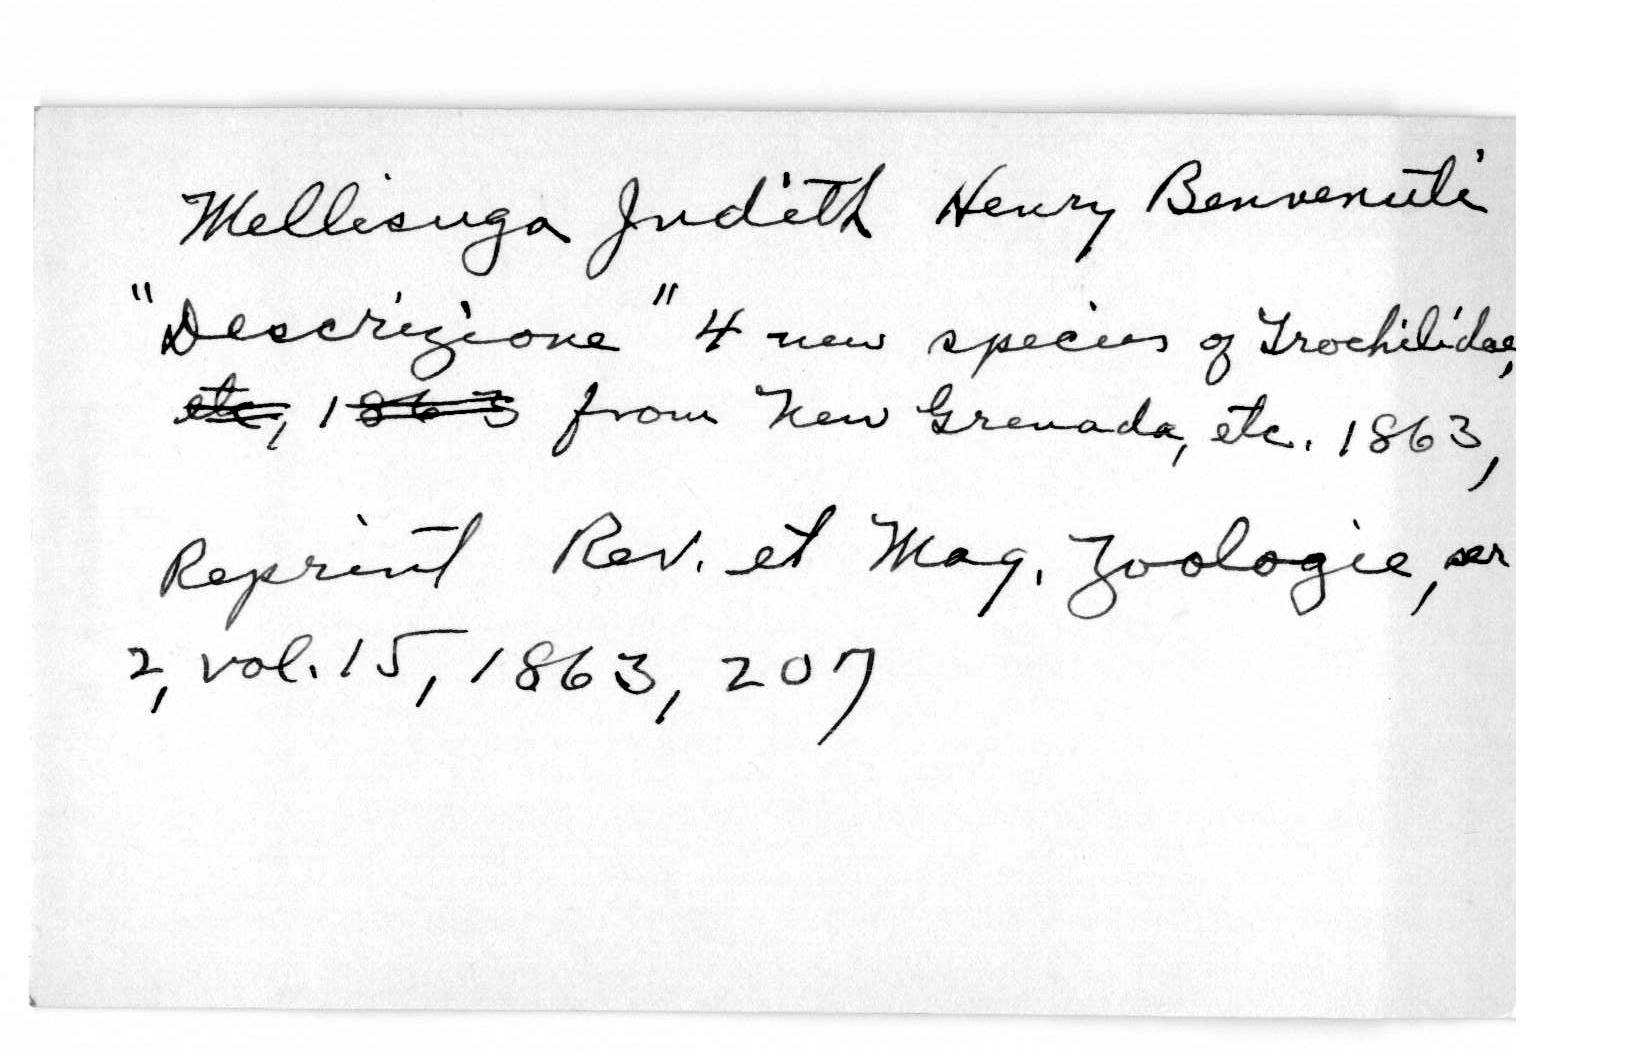 Mellisuga Judith Henry Benvenuti
"Descrizione" 4 new species of Trochilidae,
etc, 1863 from New Grenada, etc. 1863,
Reprint Rev. et Mag. Zoologie, ser
2, vol. 15, 1863, 207